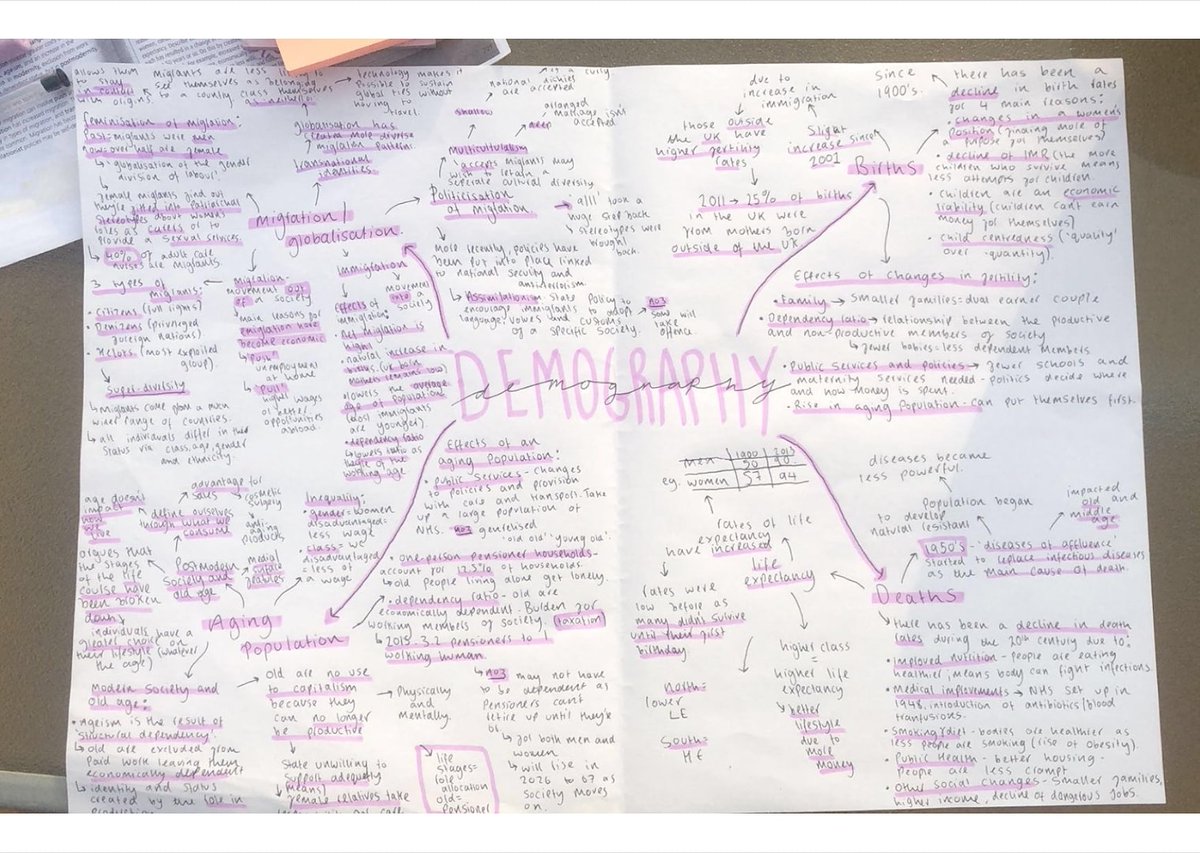 allows them
to stay
in contact
with origins.
migrants are less
see themselves as belonging
to a country, class themselves
technology makes it
possible to sustain
global ties without
having to
travel.
globalisation has
created more diverse
migration patterns.
transnational
identities.
feminisation of migration:
past: migrants were men
now: over half are female
globalisation of the gender
division of labour!
female migrants find out
they're fitted into patriarchal
stereotypes about women's
roles as carers or to
provide a sexual services.
40% of adult care
nurses are migrants.
Migration/
globalisation
shallow
national dishes
are accepted
deep
arranged
marriage isn't
accepted
Multiculturalism
accepts migrants may
wish to retain a
seperate cultural diversity.
Politicisation
of migration
9/11 took a
huge step back
stereotypes were
brought
back.
More recently, policies have
been put into place linked
to national security and
antiterrorism.
Assimilationism state policy to
encourage immigrants to adopt
language, values and customs
of a specific society.
no3
will
take
offence.
3 types of
migrants:
• Citizens (full rights)
• Denizens (privileged
foreign nations)
• Helots (most exploited
group).
Super-diversity
migrants come from a much
wider range of countries
all individuals differ in their
status via class, age, gender
and ethnicity.
Migration -
movement out
of a society
main reasons for
emigration have
become economic
'Push'
unemployment
at home
'Pull'
higher wages
or better
opportunities
abroad.
Immigration
movement
into a
society
effects of
immigration:
• Net migration is
high!
• natural increase in
births. (UK born
mothers remains low)
• lowers the average
age of population
(most immigrants
are younger).
• dependency ratio
lowers ratio as
they're of the
working age
DEMOGRAPHY
demography
due to
increase in
immigration
those outside
the UK have
higher fertility
rates
Slight
increase since
2001
2011 → 25% of births
in the UK were
from mothers born
outside of the UK
Births
since
1900's.
there has been a
decline in birth rates
for 4 main reasons:
• changes in a womens
position (finding more of
a purpose for themselves)
• decline of IMR (the more
children who survive means
less attempts for children.
• Children are an economic
liability (children can't earn
money for themselves)
• Child centredness ('quality'
over 'quantity').
Effects of Changes in fertility:
• Family → smaller families = dual earner couple
• Dependency ratio → relationship between the productive
and non-productive members of society
fewer babies = less dependent members
• Public services and policies → fewer schools and
maternity services needed - politics decide where
and how money is spent.
• Rise in aging population - can put themselves first.
Effects of an
aging population:
• Public services - changes
to policies and provision
with care and transport. Take
up a large population of
NHS. no3 generalised
'old old' 'young old'.
• one-person pensioner households-
account for 12.5% of households
old people living alone get lonely.
• dependency ratio - old are
economically dependent. Burden for
working members of society. (taxation)
2015 - 3.2 pensioners to 1
working human.
no3 may not have
to be dependent as
pensioners can't
retire up until they're
for both men and
women.
will rise in
2026 to 67 as
society moves
on.
age doesn't
impact
how
we
live
advantage for
sales
cosmetic
surgery
anti
aging
products
define ourselves
through what we
consume
argues that
the stages
of the life
course have
been broken
down
Postmodern
society and
old age
medial
surface
features
individuals have a
greater choice on
their lifestyle (whatever
the age)
Inequality:
• gender = women
disadvantaged =
less wage
• class = WC
disadvantaged
= less of
a wage
Aging
population
Modern society and
old age:
• Ageism is the result of
'structural dependency'
old are excluded from
paid work leaving them
economically dependent
identity and status
created by the role in
production
old are no use
to capitalism
because they
can no longer
be productive
Physically
and
mentally.
State unwilling to
support adequately
(means)
female relatives take
life
stages -
role
allocation
old =
pensioner
1900 2013
men 50 90
eg. women 57 94
rates of life
expectancy
have increased
life
expectancy
rates were
low before as
many didn't survive
until their first
birthday
north =
lower
LE
South =
H E
higher class
=
higher life
expectancy
better
lifestyle
due to
more
money
diseases became
less powerful.
population began
to develop
natural resistant
impacted
old and
middle
age
1950's - 'diseases of affluence'
started to replace infectious diseases
as the main cause of death.
Deaths
there has been a decline in death
rates during the 20th century due to:
• Improved nutrition - people are eating
healthier, means body can fight infections.
• Medical improvements → NHS set up in
1948, introduction of antibiotics/blood
transfusions.
• Smoking/diet - bodies are healthier as
less people are smoking (rise of obesity).
• Public Health - better housing -
people are less crampt
• Other social changes - smaller families,
higher income, decline of dangerous jobs.